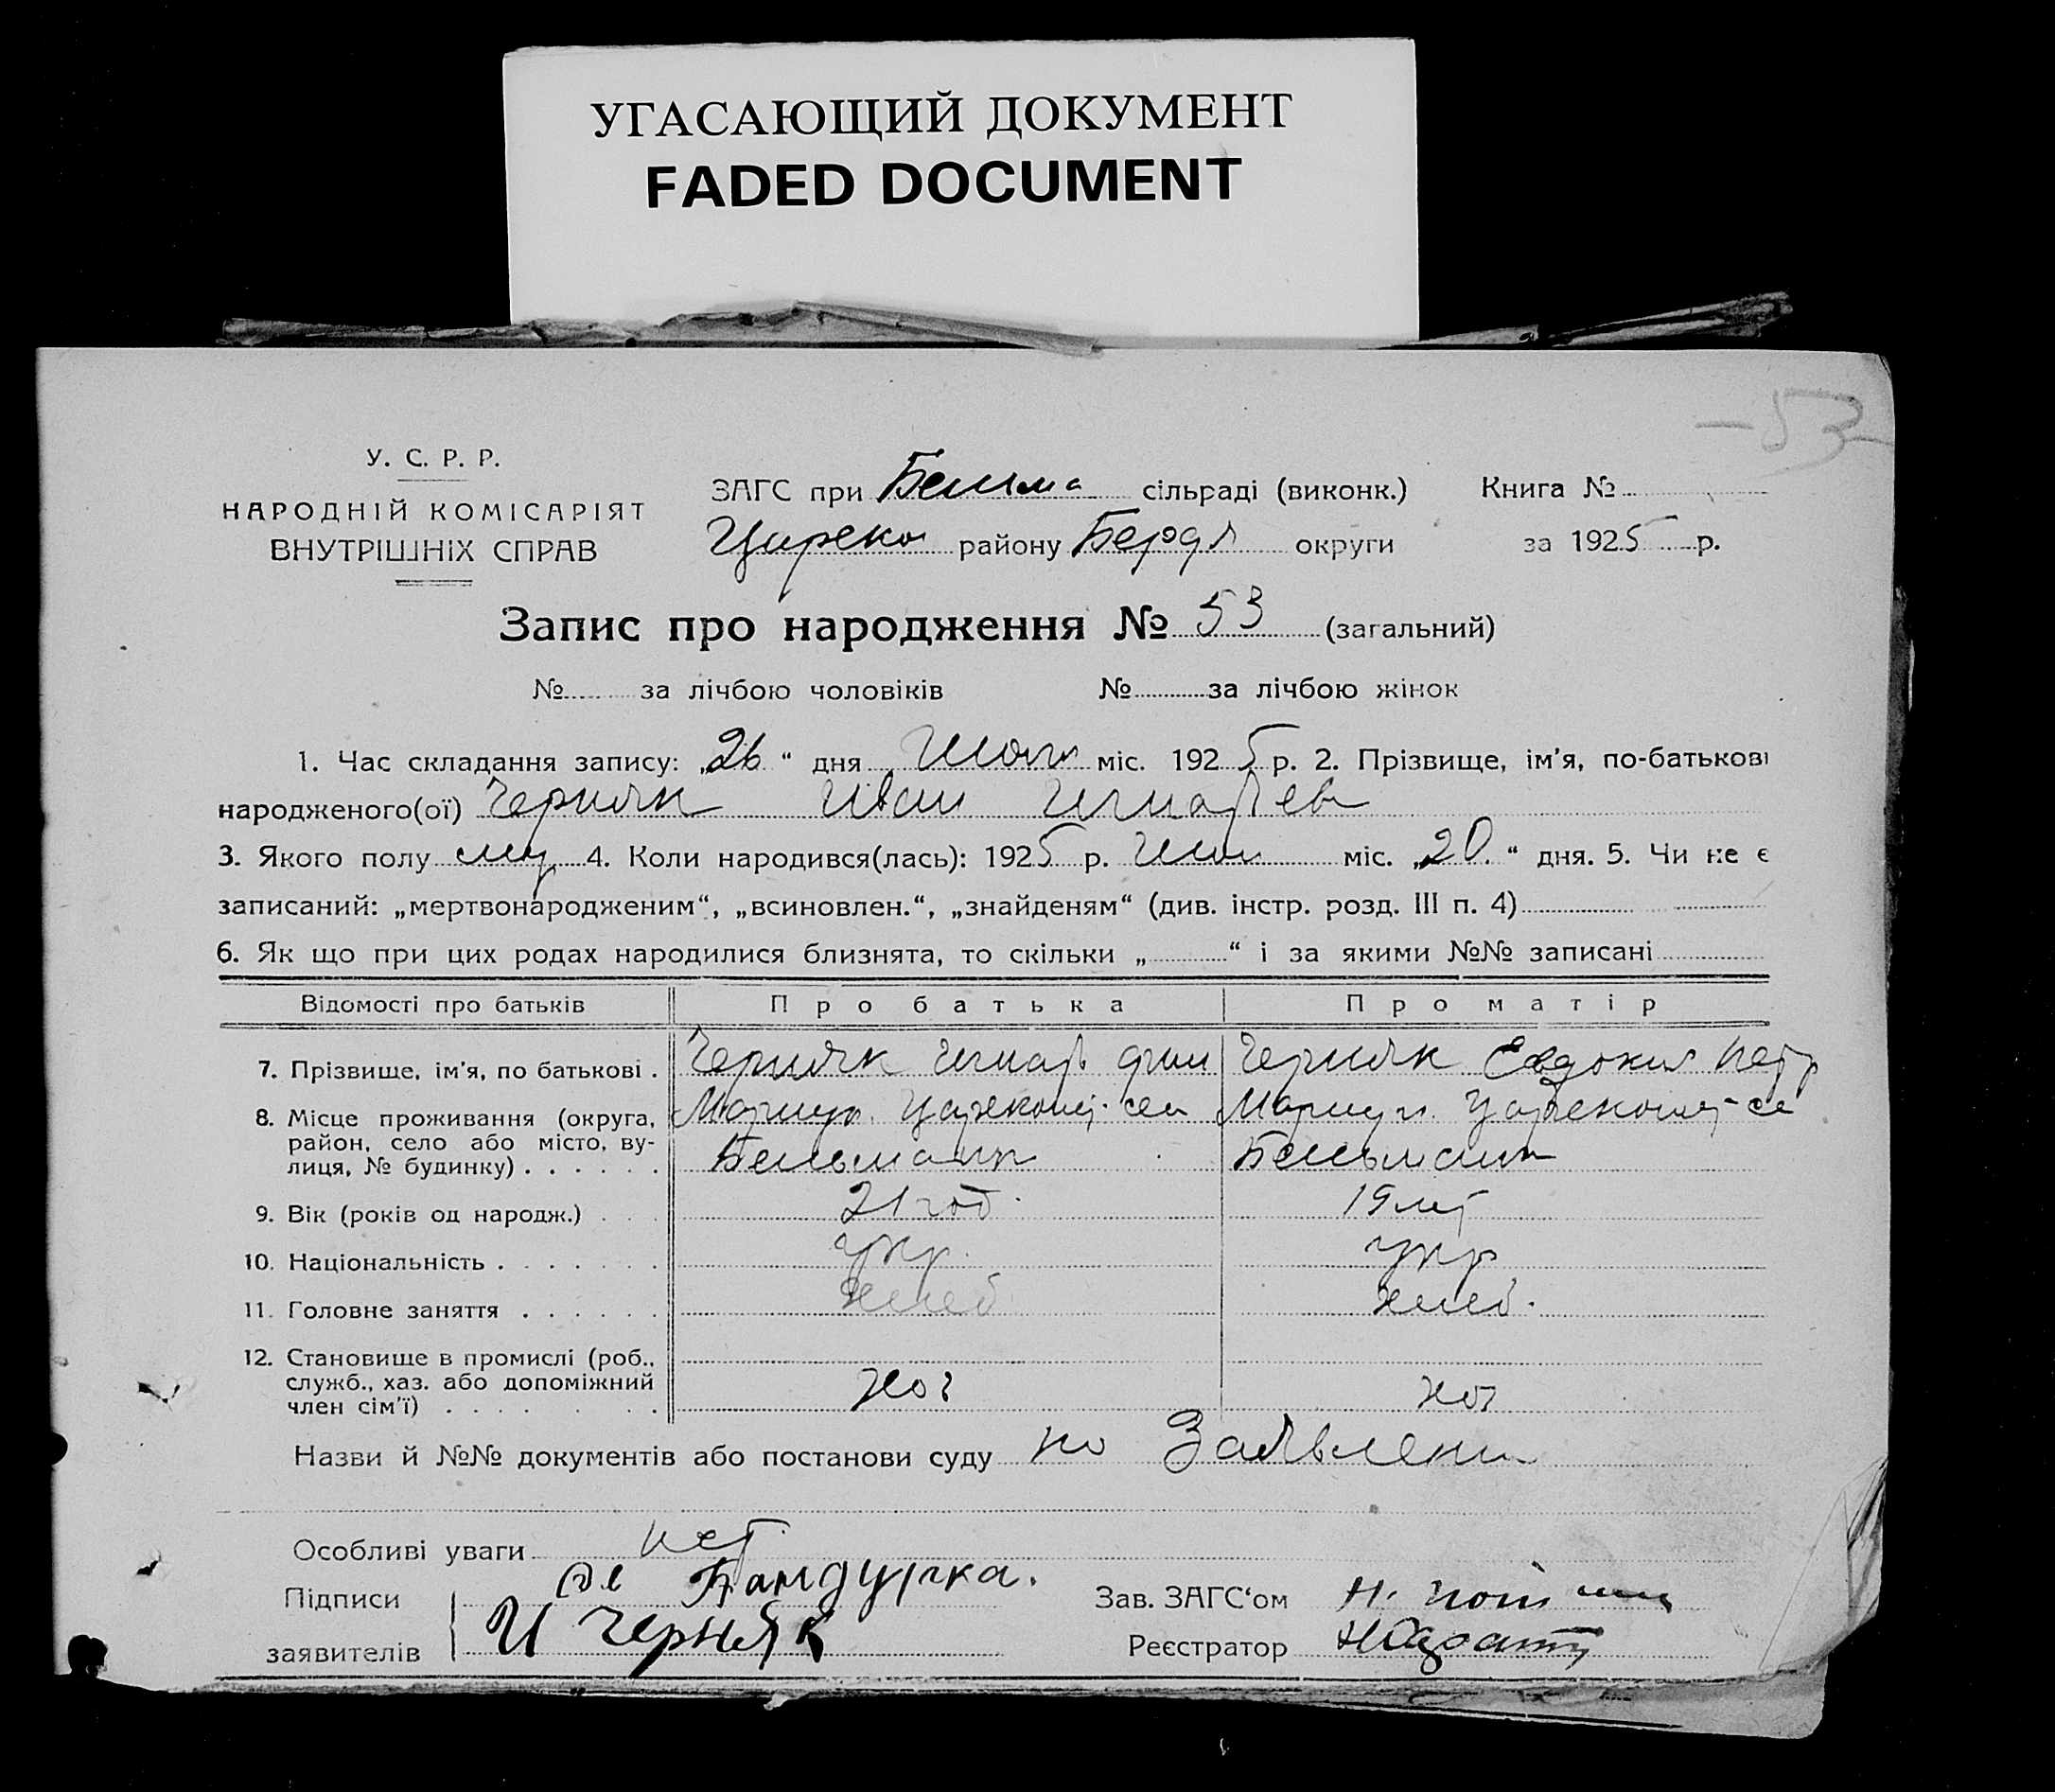 УГАСАЮЩИЙ ДОКУМЕНТ
FADED DOCUMENT
-53-
У. С. Р. Р.
НАРОДНІЙ КОМІСАРІЯТ
ВНУТРІШНІХ СПРАВ
ЗАГС при Бельма сільраді (виконк.) Книга №
Цареко району Бердя округи за 1925 р.
Запис про народження № 53 (загальний)
№ за лічбою чоловіків № за лічбою жінок
1. Час складання запису: „26“ дня міс. 1925 р. 2. Прізвище, ім'я, по-батькові
народженого(ої) Черняк Иван Игнатьев
3. Якого полу муж 4. Коли народився(лась): 1925 р. міс. „20.“ дня. 5. Чи не є
записаний: „мертвонародженим“, „всиновлен.“, „знайденям“ (див. інстр. розд. III п. 4)
6. Як що при цих родах народилися близнята, то скільки „ “ і за якими №№ записані
Відомості про батьків Про батька Про матір
7. Прізвище, ім'я, по батькові . Черняк Игнат Черняк Евдокия Петр
8. Місце проживання (округа, район, село або місто, вулиця, № будинку) . . . . . . Мариуп. Царекон. сел Бельманк Мариуп. Царекон. се Бельманк
9. Вік (років од народж.) . . . 21 год. 19 лет
10. Національність . . . . . . . укр. укр
11. Головне заняття . . . . . . хлеб хлеб.
12. Становище в промислі (роб., служб., хаз. або допоміжний член сім'ї) . . . . . . хоз хоз
Назви й №№ документів або постанови суду по Заявлени
Особливі уваги нет
Підписи Бандурка. Зав. ЗАГС‘ом Н.
заявителів И Черняк Реєстратор